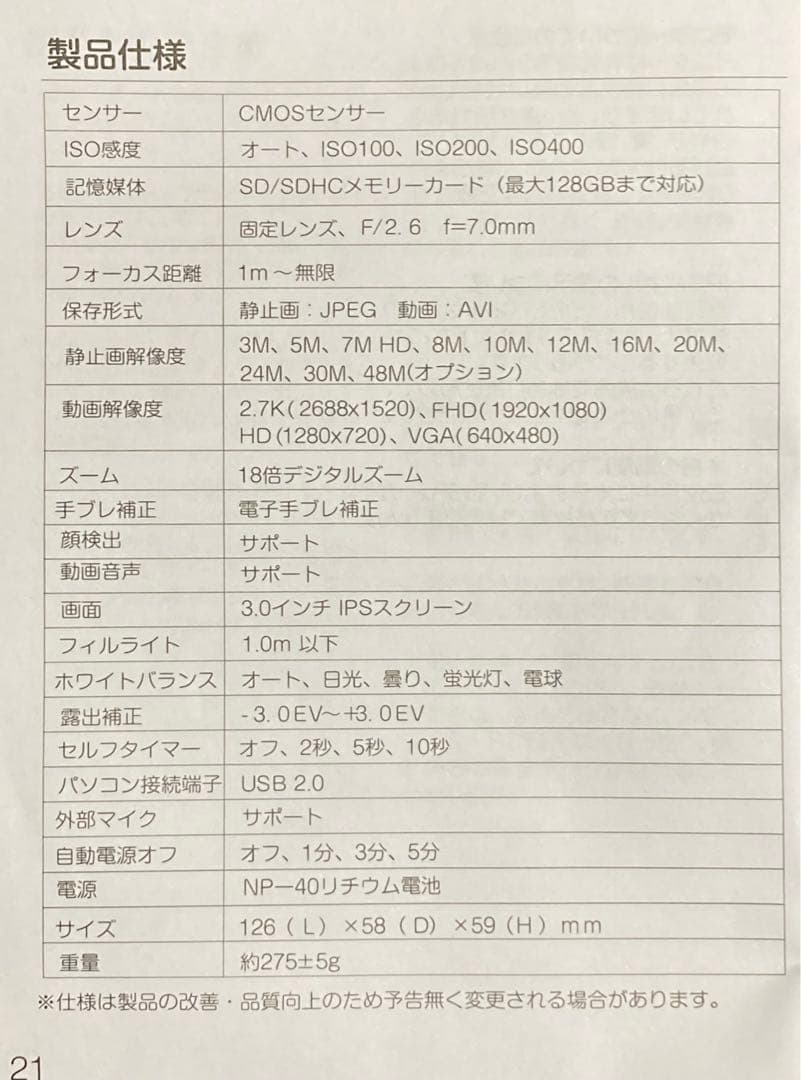 製品仕様
センサー CMOSセンサー
ISO感度 オート、ISO100、ISO200、ISO400
記憶媒体 SD/SDHCメモリーカード（最大128GBまで対応）
レンズ 固定レンズ、F/2.6 f=7.0mm
フォーカス距離 1m～無限
保存形式 静止画：JPEG 動画：AVI
静止画解像度 3M、5M、7M HD、8M、10M、12M、16M、20M、
24M、30M、48M(オプション)
動画解像度 2.7K(2688x1520)、FHD(1920x1080)
HD(1280x720)、VGA(640x480)
ズーム 18倍デジタルズーム
手ブレ補正 電子手ブレ補正
顔検出 サポート
動画音声 サポート
画面 3.0インチ IPSスクリーン
フィルライト 1.0m 以下
ホワイトバランス オート、日光、曇り、蛍光灯、電球
露出補正 -3.0EV～+3.0EV
セルフタイマー オフ、2秒、5秒、10秒
パソコン接続端子 USB 2.0
外部マイク サポート
自動電源オフ オフ、1分、3分、5分
電源 NP—40リチウム電池
サイズ 126（L）×58（D）×59（H）mm
重量 約275±5g
※仕様は製品の改善・品質向上のため予告無く変更される場合があります。
21